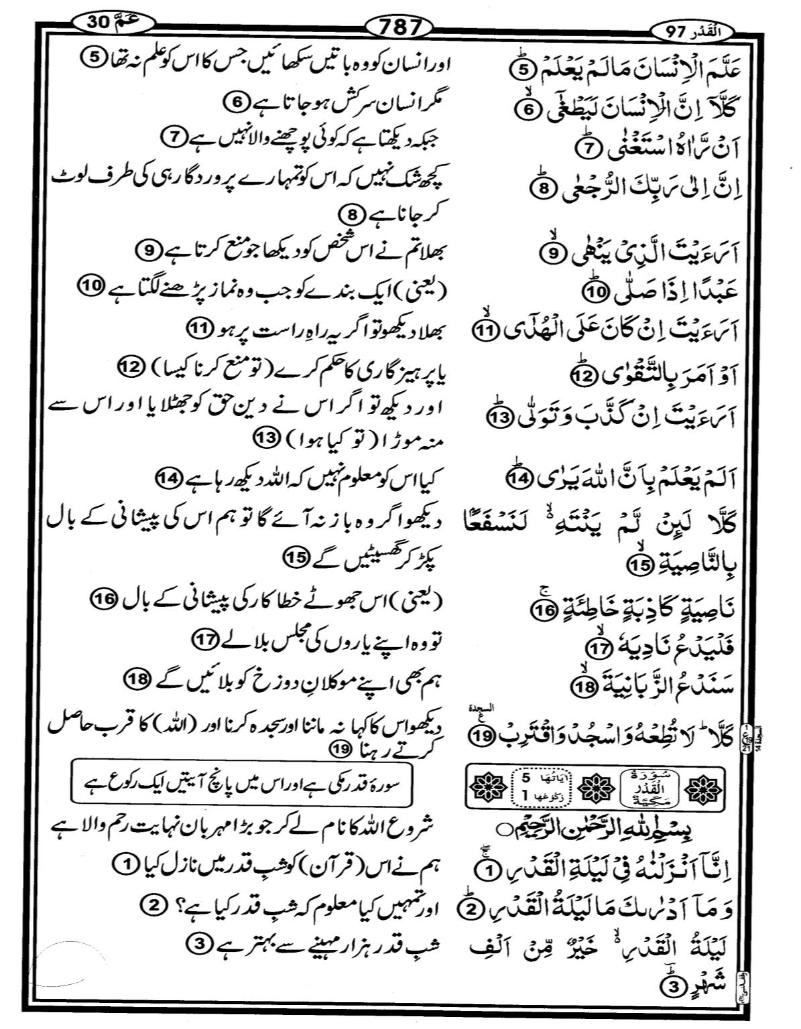 اَلْقَدْر 97
787
عَمَّ 30
عَلَّمَ الْاِنْسَانَ مَا لَمْ يَعْلَمْ ؕ 5 اور انسان کو وہ باتیں سکھائیں جس کا اس کو علم نہ تھا 5
كَلَّآ اِنَّ الْاِنْسَانَ لَيَطْغٰٓى ۙ 6 مگر انسان سرکش ہو جاتا ہے 6
اَنْ رَّاٰهُ اسْتَغْنٰى ؕ 7 جبکہ دیکھتا ہے کہ کوئی پوچھنے والا نہیں ہے 7
اِنَّ اِلٰى رَبِّكَ الرُّجْعٰى ؕ 8 کچھ شک نہیں کہ اس کو تمہارے پروردگار ہی کی طرف لوٹ
کر جانا ہے 8
اَرَءَيْتَ الَّذِىْ يَنْهٰى ۙ 9 بھلا تم نے اس شخص کو دیکھا جو منع کرتا ہے 9
عَبْدًا اِذَا صَلّٰى ؕ 10 (یعنی) ایک بندے کو جب وہ نماز پڑھنے لگتا ہے 10
اَرَءَيْتَ اِنْ كَانَ عَلَى الْهُدٰٓى ۙ 11 بھلا دیکھو تو اگر یہ راہِ راست پر ہو 11
اَوْ اَمَرَ بِالتَّقْوٰى ؕ 12 یا پرہیز گاری کا حکم کرے (تو منع کرنا کیسا) 12
اَرَءَيْتَ اِنْ كَذَّبَ وَتَوَلّٰى ؕ 13 اور دیکھ تو اگر اس نے دین حق کو جھٹلایا اور اس سے
منہ موڑا (تو کیا ہوا) 13
اَلَمْ يَعْلَمْ بِاَنَّ اللّٰهَ يَرٰى ؕ 14 کیا اس کو معلوم نہیں کہ اللہ دیکھ رہا ہے 14
كَلَّا لَئِنْ لَّمْ يَنْتَهِ ۙ لَنَسْفَعًۢا دیکھو اگر وہ باز نہ آئے گا تو ہم اس کی پیشانی کے بال
بِالنَّاصِيَةِ ۙ 15 پکڑ کر گھسیٹیں گے 15
نَاصِيَةٍ كَاذِبَةٍ خَاطِئَةٍ ۚ 16 (یعنی) اس جھوٹے خطا کار کی پیشانی کے بال 16
فَلْيَدْعُ نَادِيَهٗ ۙ 17 تو وہ اپنے یاروں کی مجلس بلا لے 17
سَنَدْعُ الزَّبَانِيَةَ ۙ 18 ہم بھی اپنے موکلانِ دوزخ کو بلائیں گے 18
كَلَّا ؕ لَا تُطِعْهُ وَاسْجُدْ وَاقْتَرِبْ السجدة 19 دیکھو اس کا کہا نہ ماننا اور سجدہ کرنا اور (اللہ) کا قرب حاصل
کرتے رہنا 19
سُوْرَةُ الْقَدْرِ مَكِّيَّةٌ اٰيَاتُهَا 5 رُكُوْعُهَا 1 سورۂ قدر مکی ہے اور اس میں پانچ آیتیں ایک رکوع ہے
بِسْمِ اللّٰهِ الرَّحْمٰنِ الرَّحِيْمِ ۝ شروع اللہ کا نام لے کر جو بڑا مہربان نہایت رحم والا ہے
اِنَّآ اَنْزَلْنٰهُ فِىْ لَيْلَةِ الْقَدْرِ ۚ 1 ہم نے اس (قرآن) کو شبِ قدر میں نازل کیا 1
وَمَآ اَدْرٰىكَ مَا لَيْلَةُ الْقَدْرِ ؕ 2 اور تمہیں کیا معلوم کہ شبِ قدر کیا ہے؟ 2
لَيْلَةُ الْقَدْرِ ۙ خَيْرٌ مِّنْ اَلْفِ شبِ قدر ہزار مہینے سے بہتر ہے 3
شَهْرٍ ؕ 3